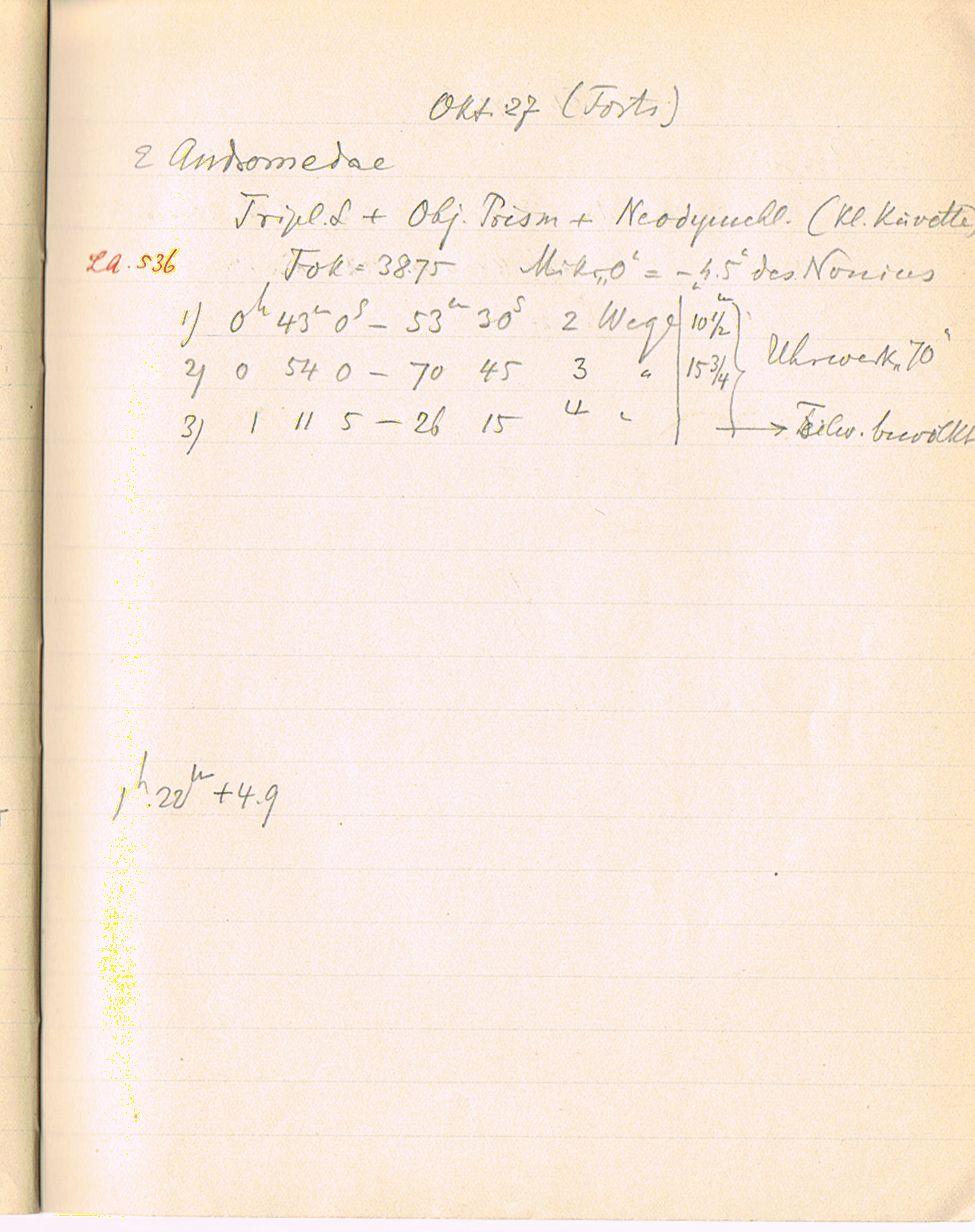 Okt. 27 (Forts.)
ε Andromedae
Tripl. L + Obj. Prism + Neodymchl. (Kl. Küvette)
LA. 536 Fok = 38.75 Mikr „0“ = „-4.5“ des Nonius
1) 0h 43m 0s – 53m 30s 2 Wege 10 1/2m
2) 0 54 0 – 70 45 3 " 15 3/4 Uhrwerk „70“
3) 1 11 5 – 26 15 4 " → Teilw. bewölkt
1h 22m +4.9